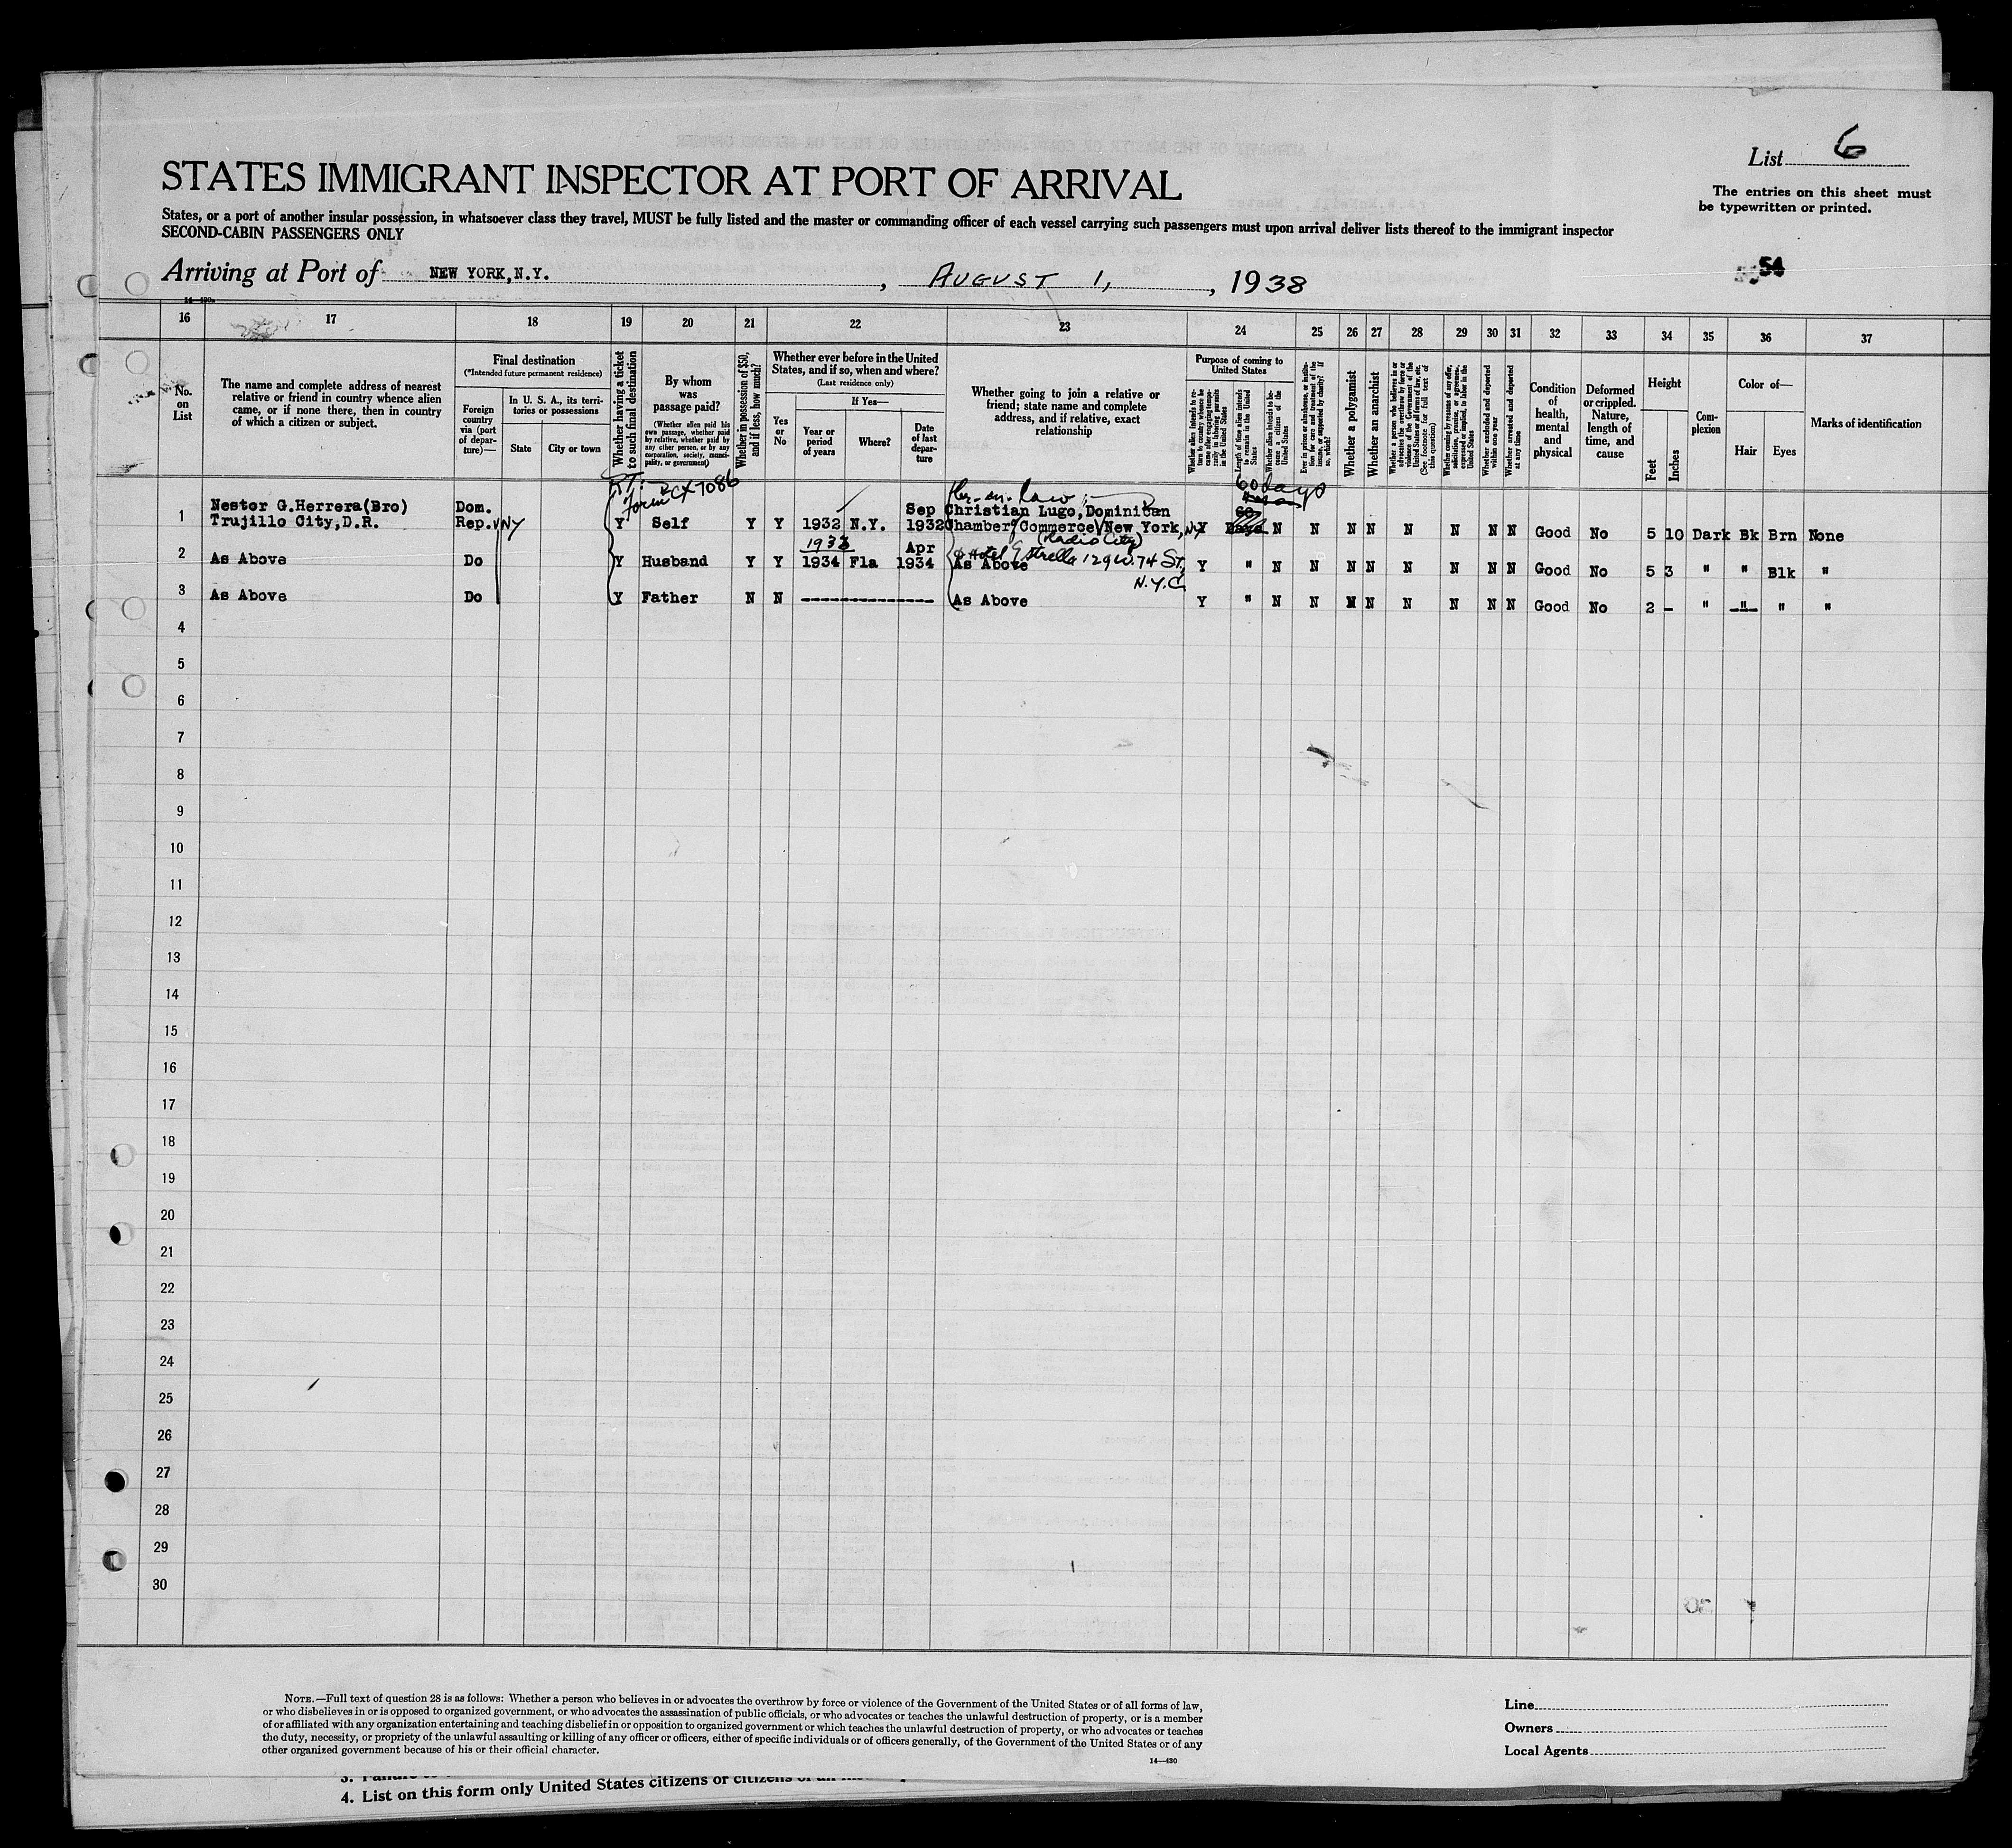 List 6
STATES IMMIGRANT INSPECTOR AT PORT OF ARRIVAL
The entries on this sheet must
be typewritten or printed.
States, or a port of another insular possession, in whatsoever class they travel, MUST be fully listed and the master or commanding officer of each vessel carrying such passengers must upon arrival deliver lists thereof to the immigrant inspector
SECOND-CABIN PASSENGERS ONLY
54
Arriving at Port of NEW YORK,N.Y. , AUGUST 1, , 1938
16 17 18 19 20 21 22 23 24 25 26 27 28 29 30 31 32 33 34 35 36 37
No. on List
The name and complete address of nearest
relative or friend in country whence alien
came, or if none there, then in country
of which a citizen or subject.
Final destination
(*Intended future permanent residence)
Foreign
country
via (port
of depar-
ture)—
In U. S. A., its terri-
tories or possessions
State
City or town
Whether having a ticket
to such final destination
By whom
was
passage paid?
(Whether alien paid his
own passage, whether paid
by relative, whether paid by
any other person, or by any
corporation, society, munici-
pality, or government)
Whether in possession of $50,
and if less, how much?
Whether ever before in the United
States, and if so, when and where?
(Last residence only)
Yes
or
No
If Yes—
Year or
period
of years
Where?
Date
of last
depar-
ture
Whether going to join a relative or
friend; state name and complete
address, and if relative, exact
relationship
Purpose of coming to
United States
Whether alien intends to re-
turn to country whence he
came after engaging tempo-
rarily in laboring pursuits
in the United States
Length of time alien intends
to remain in the United
States
Whether alien intends to be-
come a citizen of the
United States
Ever in prison or almshouse, or institu-
tion for care and treatment of the
insane, or supported by charity? If
so, which?
Whether a polygamist
Whether an anarchist
Whether a person who believes in or
advocates the overthrow by force or
violence of the Government of the
United States or all forms of law, etc.
(See footnote for full text of
this question)
Whether coming by reasons of any offer,
solicitation, promise, or agreement,
expressed or implied, to labor in the
United States
Whether excluded and deported
within one year
Whether arrested and deported
at any time
Condition
of
health,
mental
and
physical
Deformed
or crippled.
Nature,
length of
time, and
cause
Height
Feet
Inches
Com-
plexion
Color of—
Hair
Eyes
Marks of identification
60 days
1 Nestor G.Herrera(Bro) Dom. Sep Christian Lugo,Dominican
Trujillo City,D.R. Rep. NY Y Self Y Y 1932 N.Y. 1932 Chamber of Commerce New York, NY Y N N N N N N N N Good No 5 10 Dark Bk Brn None
(Radio City)
1933 Apr Hotel Estrella 129 W. 74 St,
2 As Above Do Y Husband Y Y 1934 Fla 1934 As Above Y " N N N N N N N N Good No 5 3 " " Blk "
N.Y.C.
3 As Above Do Y Father N N ---------------- As Above Y " N N N N N N N N Good No 2 - " " " "
4
5
6
7
8
9
10
11
12
13
14
15
16
17
18
19
20
21
22
23
24
25
26
27
28
29
30
NOTE.—Full text of question 28 is as follows: Whether a person who believes in or advocates the overthrow by force or violence of the Government of the United States or of all forms of law,
or who disbelieves in or is opposed to organized government, or who advocates the assassination of public officials, or who advocates or teaches the unlawful destruction of property, or is a member
of or affiliated with any organization entertaining and teaching disbelief in or opposition to organized government or which teaches the unlawful destruction of property, or who advocates or teaches
the duty, necessity, or propriety of the unlawful assaulting or killing of any officer or officers, either of specific individuals or of officers generally, of the Government of the United States or of any
other organized government because of his or their official character.
14—430
Line
Owners
Local Agents
4. List on this form only United States citizens or citizens of an